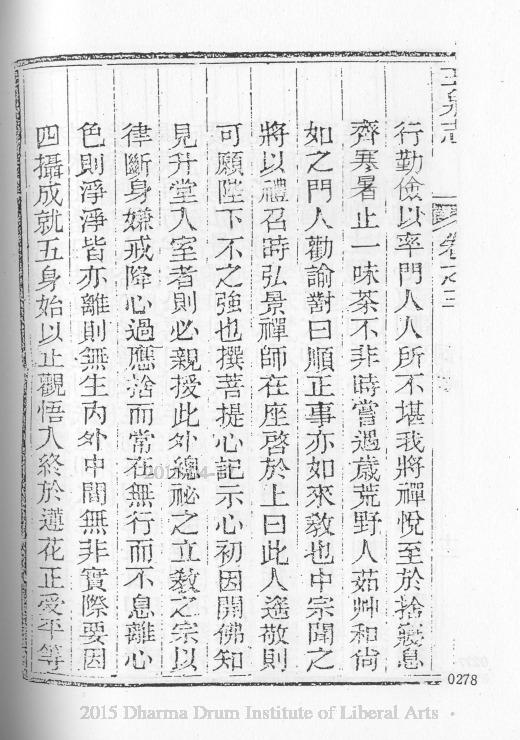 玉泉志
卷之三
行勤儉以率門人人所不堪我將禪悅至於捨蔉息
齊寒暑止一味茶不非時嘗遇歲荒野人茹艸和尙
如之門人勸諭對曰順正事亦如來敎也中宗聞之
將以禮召時弘景禪師在座啓於上曰此人遙敬則
可願陛下不之強也撰菩提心記示心初因開佛知
見升堂入室者則必親授此外總祕之立敎之宗以
律斷身嫌戒降心過應捨而常在無行而不息離心
色則淨淨皆亦離則無生內外中間無非實際要因
四攝成就五身始以止觀悟入終於蓮花正受平等
0278
2015 Dharma Drum Institute of Liberal Arts